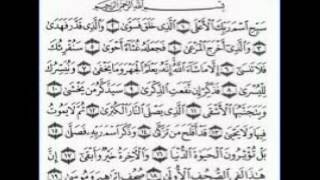 بِسْمِ اللَّهِ الرَّحْمَٰنِ الرَّحِيمِ
سَبِّحِ اسْمَ رَبِّكَ الْأَعْلَى ١ الَّذِي خَلَقَ فَسَوَّىٰ ٢ وَالَّذِي قَدَّرَ فَهَدَىٰ
٣ وَالَّذِي أَخْرَجَ الْمَرْعَىٰ ٤ فَجَعَلَهُ غُثَاءً أَحْوَىٰ ٥ سَنُقْرِئُكَ
فَلَا تَنسَىٰ ٦ إِلَّا مَا شَاءَ اللَّهُ إِنَّهُ يَعْلَمُ الْجَهْرَ وَمَا يَخْفَىٰ ٧ وَنُيَسِّرُكَ
لِلْيُسْرَىٰ ٨ فَذَكِّرْ إِن نَّفَعَتِ الذِّكْرَىٰ ٩ سَيَذَّكَّرُ مَن يَخْشَىٰ ١٠
وَيَتَجَنَّبُهَا الْأَشْقَى ١١ الَّذِي يَصْلَى النَّارَ الْكُبْرَىٰ ١٢ ثُمَّ لَا يَمُوتُ
فِيهَا وَلَا يَحْيَىٰ ١٣ قَدْ أَفْلَحَ مَن تَزَكَّىٰ ١٤ وَذَكَرَ اسْمَ رَبِّهِ فَصَلَّىٰ ١٥
بَلْ تُؤْثِرُونَ الْحَيَوٰةَ الدُّنْيَا ١٦ وَالْآخِرَةُ خَيْرٌ وَأَبْقَىٰ ١٧ إِنَّ
هَٰذَا لَفِي الصُّحُفِ الْأُولَىٰ ١٨ صُحُفِ إِبْرَاهِيمَ وَمُوسَىٰ ١٩